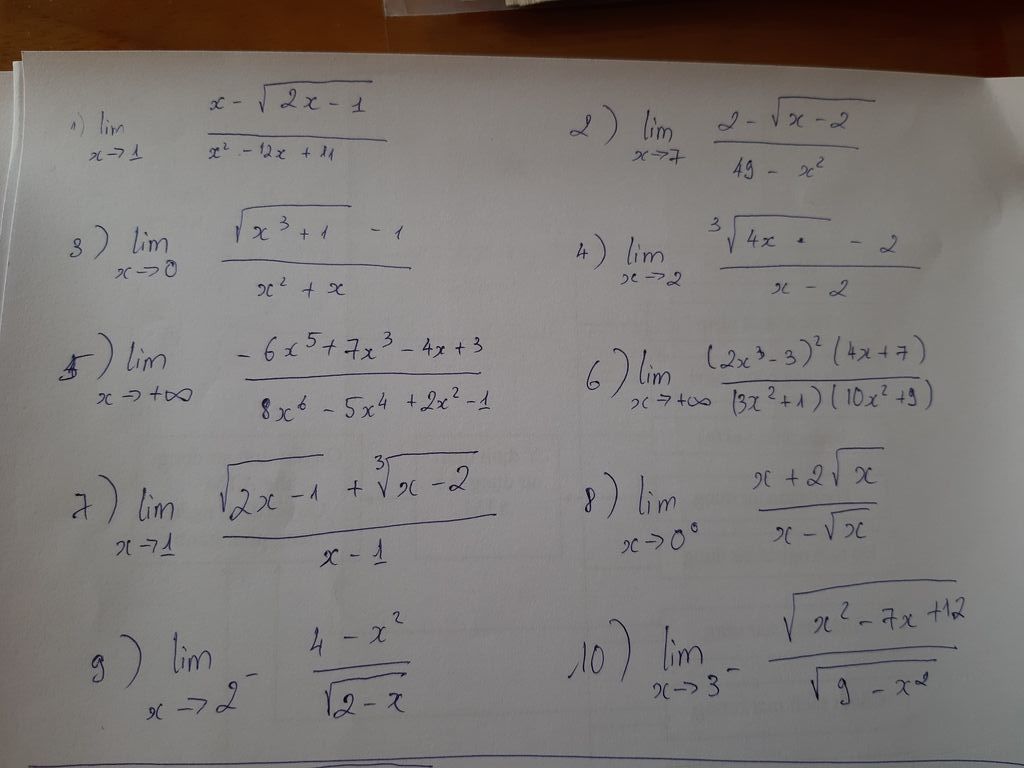 1) lim x→1 (x - √(2x - 1)) / (x² - 12x + 11)
2) lim x→7 (2 - √(x - 2)) / (49 - x²)
3) lim x→0 (√(x³ + 1) - 1) / (x² + x)
4) lim x→2 (³√(4x) - 2) / (x - 2)
5) lim x→+∞ (-6x⁵ + 7x³ - 4x + 3) / (8x⁶ - 5x⁴ + 2x² - 1)
6) lim x→+∞ ((2x³ - 3)² (4x + 7)) / ((3x² + 1)(10x² + 9))
7) lim x→1 (√(2x - 1) + ³√(x - 2)) / (x - 1)
8) lim x→0⁺ (x + 2√x) / (x - √x)
9) lim x→2⁻ (4 - x²) / √(2 - x)
10) lim x→3⁻ √(x² - 7x + 12) / √(9 - x²)